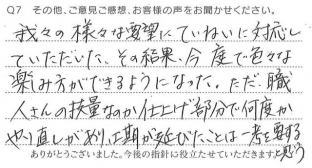 Q7 その他、ご意見ご感想、お客様の声をお聞かせください。
我々の様々な要望にていねいに対応し
ていただいた。その結果、今庭で色々な
楽しみ方ができるようになった。ただ、職
人さんの技量なのか仕上げ部分で何度か
やり直しがあり、工期が延びたことは一考を要する
と思う
ありがとうございました。今後の指針に役立たせていただきます。